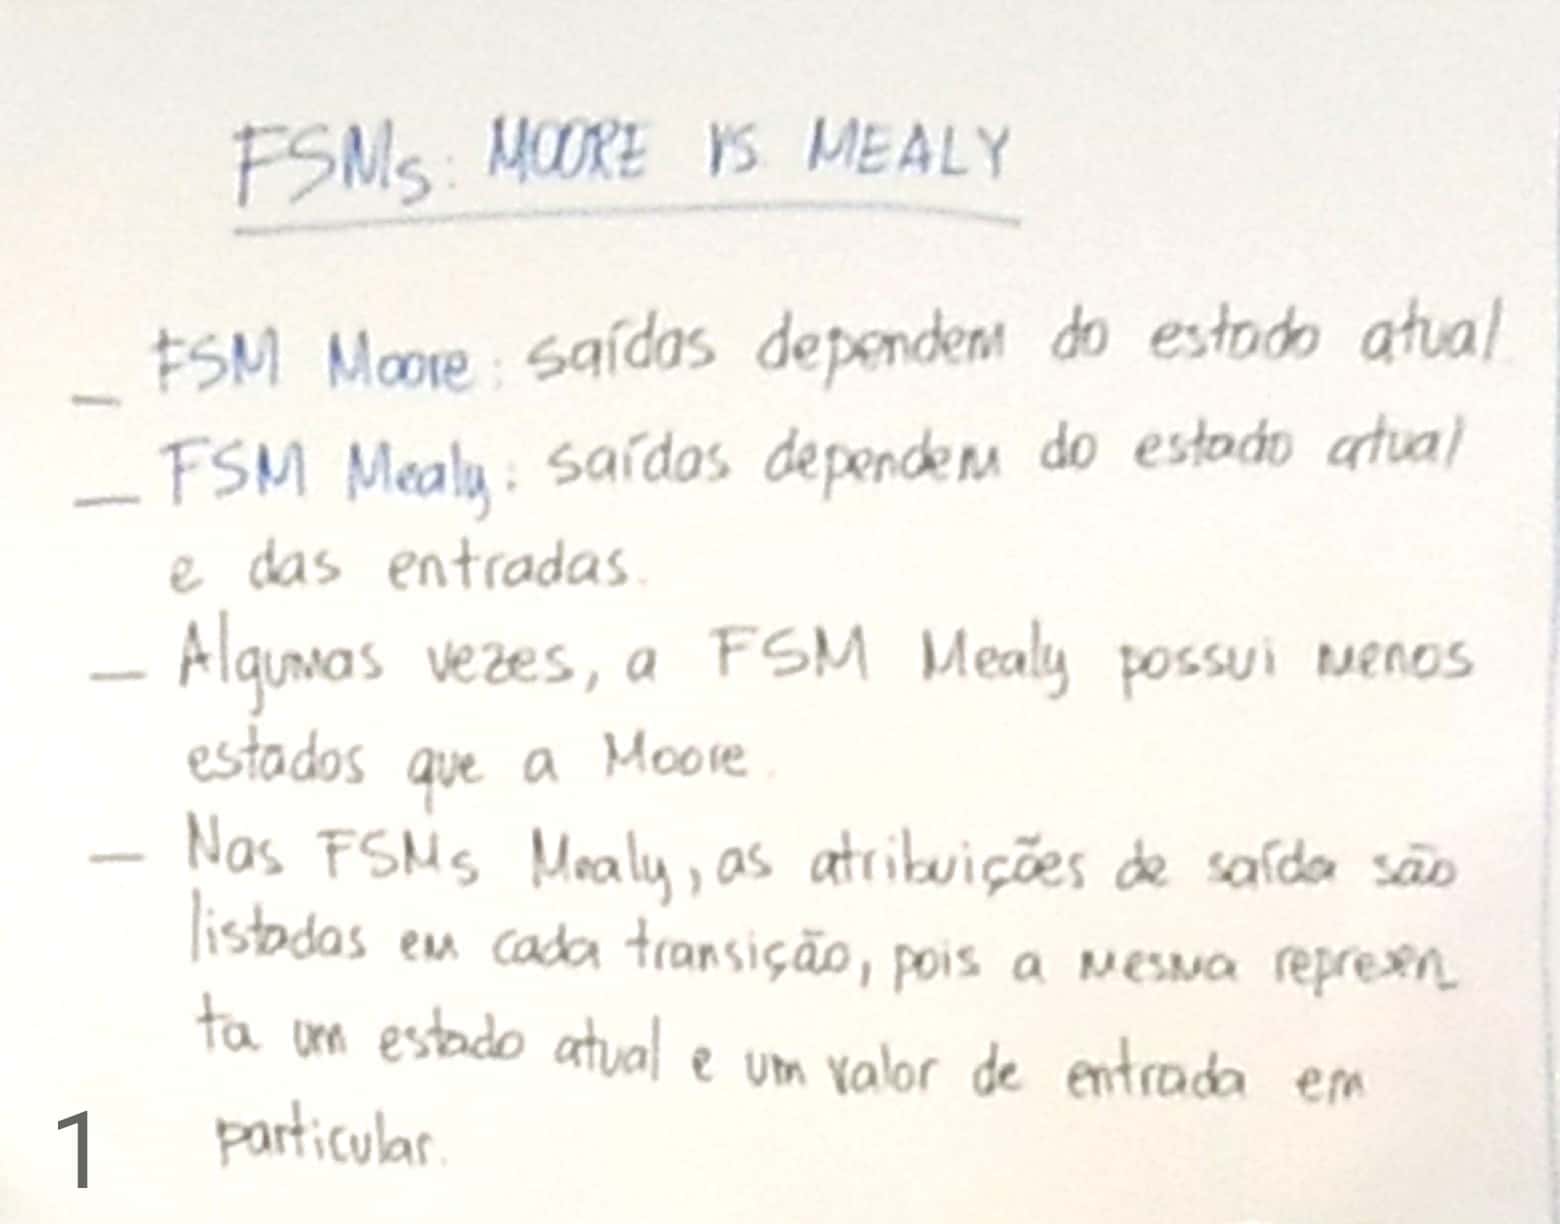 FSMs: MOORE VS MEALY
_ FSM Moore: saídas dependem do estado atual
_ FSM Mealy: saídas dependem do estado atual
e das entradas.
_ Algumas vezes, a FSM Mealy possui menos
estados que a Moore.
_ Nas FSMs Mealy, as atribuições de saída são
listadas em cada transição, pois a mesma represen_
ta um estado atual e um valor de entrada em
particular.
1